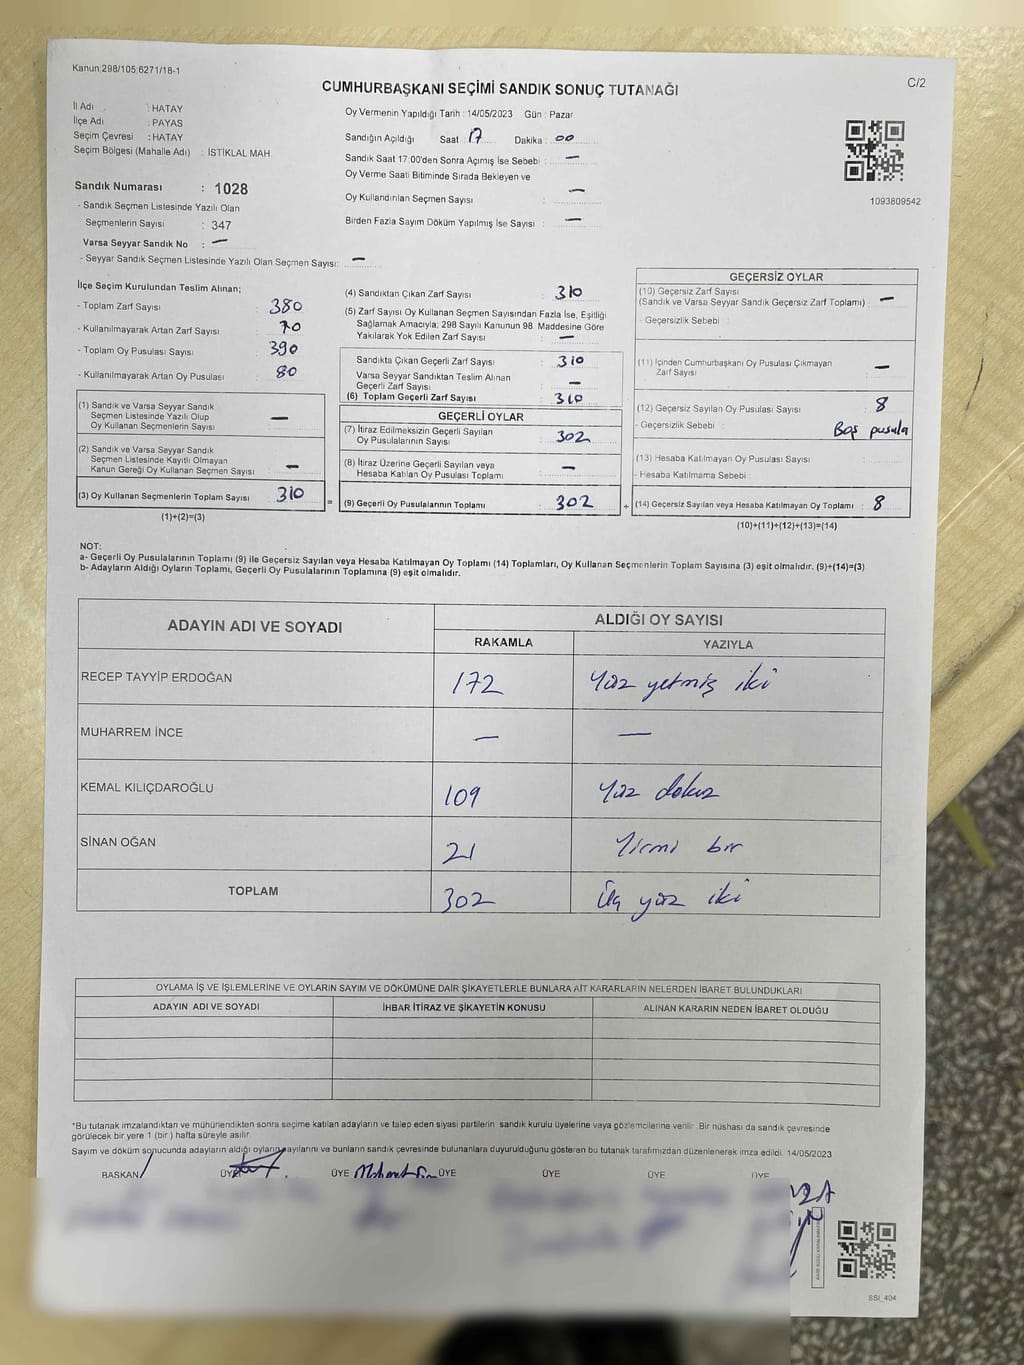 Kanun:298/105;6271/18-1
C/2
CUMHURBAŞKANI SEÇİMİ SANDIK SONUÇ TUTANAĞI
İl Adı : HATAY
İlçe Adı : PAYAS
Seçim Çevresi : HATAY
Seçim Bölgesi (Mahalle Adı) : İSTİKLAL MAH.
Oy Vermenin Yapıldığı Tarih : 14/05/2023 Gün : Pazar
Sandığın Açıldığı Saat : 17 Dakika : 00
Sandık Saat 17:00'den Sonra Açımış İse Sebebi : —
Oy Verme Saati Bitiminde Sırada Bekleyen ve
Oy Kullandırılan Seçmen Sayısı : —
Birden Fazla Sayım Döküm Yapılmış İse Sayısı : —
1093809542
Sandık Numarası : 1028
- Sandık Seçmen Listesinde Yazılı Olan
Seçmenlerin Sayısı : 347
Varsa Seyyar Sandık No : —
- Seyyar Sandık Seçmen Listesinde Yazılı Olan Seçmen Sayısı: —
İlçe Seçim Kurulundan Teslim Alınan;
- Toplam Zarf Sayısı : 380
- Kullanılmayarak Artan Zarf Sayısı : 70
- Toplam Oy Pusulası Sayısı : 390
- Kullanılmayarak Artan Oy Pusulası : 80
(1) Sandık ve Varsa Seyyar Sandık
Seçmen Listesinde Yazılı Olup
Oy Kullanan Seçmenlerin Sayısı : —
(2) Sandık ve Varsa Seyyar Sandık
Seçmen Listesinde Kayıtlı Olmayan
Kanun Gereği Oy Kullanan Seçmen Sayısı : —
(3) Oy Kullanan Seçmenlerin Toplam Sayısı : 310
(1)+(2)=(3)
(4) Sandıktan Çıkan Zarf Sayısı : 310
(5) Zarf Sayısı Oy Kullanan Seçmen Sayısından Fazla İse, Eşitliği
Sağlamak Amacıyla; 298 Sayılı Kanunun 98. Maddesine Göre
Yakılarak Yok Edilen Zarf Sayısı : —
Sandıkta Çıkan Geçerli Zarf Sayısı : 310
Varsa Seyyar Sandıktan Teslim Alınan
Geçerli Zarf Sayısı : —
(6) Toplam Geçerli Zarf Sayısı : 310
GEÇERLİ OYLAR
(7) İtiraz Edilmeksizin Geçerli Sayılan
Oy Pusulalarının Sayısı : 302
(8) İtiraz Üzerine Geçerli Sayılan veya
Hesaba Katılan Oy Pusulası Toplamı : —
= (9) Geçerli Oy Pusulalarının Toplamı : 302 +
GEÇERSİZ OYLAR
(10) Geçersiz Zarf Sayısı
(Sandık ve Varsa Seyyar Sandık Geçersiz Zarf Toplamı) : —
- Geçersizlik Sebebi :
(11) İçinden Cumhurbaşkanı Oy Pusulası Çıkmayan
Zarf Sayısı : —
(12) Geçersiz Sayılan Oy Pusulası Sayısı : 8
- Geçersizlik Sebebi : Boş pusula
(13) Hesaba Katılmayan Oy Pusulası Sayısı :
- Hesaba Katılmama Sebebi :
(14) Geçersiz Sayılan veya Hesaba Katılmayan Oy Toplamı : 8
(10)+(11)+(12)+(13)=(14)
NOT:
a- Geçerli Oy Pusulalarının Toplamı (9) ile Geçersiz Sayılan veya Hesaba Katılmayan Oy Toplamı (14) Toplamları, Oy Kullanan Seçmenlerin Toplam Sayısına (3) eşit olmalıdır. (9)+(14)=(3)
b- Adayların Aldığı Oyların Toplamı, Geçerli Oy Pusulalarının Toplamına (9) eşit olmalıdır.
ADAYIN ADI VE SOYADI ALDIĞI OY SAYISI
RAKAMLA YAZIYLA
RECEP TAYYİP ERDOĞAN 172 Yüz yetmiş iki
MUHARREM İNCE — —
KEMAL KILIÇDAROĞLU 109 Yüz dokuz
SİNAN OĞAN 21 Yirmi bir
TOPLAM 302 Üç yüz iki
OYLAMA İŞ VE İŞLEMLERİNE VE OYLARIN SAYIM VE DÖKÜMÜNE DAİR ŞİKAYETLERLE BUNLARA AİT KARARLARIN NELERDEN İBARET BULUNDUKLARI
ADAYIN ADI VE SOYADI İHBAR İTİRAZ VE ŞİKAYETİN KONUSU ALINAN KARARIN NEDEN İBARET OLDUĞU
*Bu tutanak imzalandıktan ve mühürlendikten sonra seçime katılan adayların ve talep eden siyasi partilerin sandık kurulu üyelerine veya gözlemcilerine verilir. Bir nüshası da sandık çevresinde
görülecek bir yere 1 (bir ) hafta süreyle asılır.
Sayım ve döküm sonucunda adayların aldığı oyların sayılarını ve bunların sandık çevresinde bulunanlara duyurulduğunu gösteren bu tutanak tarafımızdan düzenlenerek imza edildi. 14/05/2023
BAŞKAN ÜYE ÜYE ÜYE ÜYE ÜYE ÜYE
SSI_404